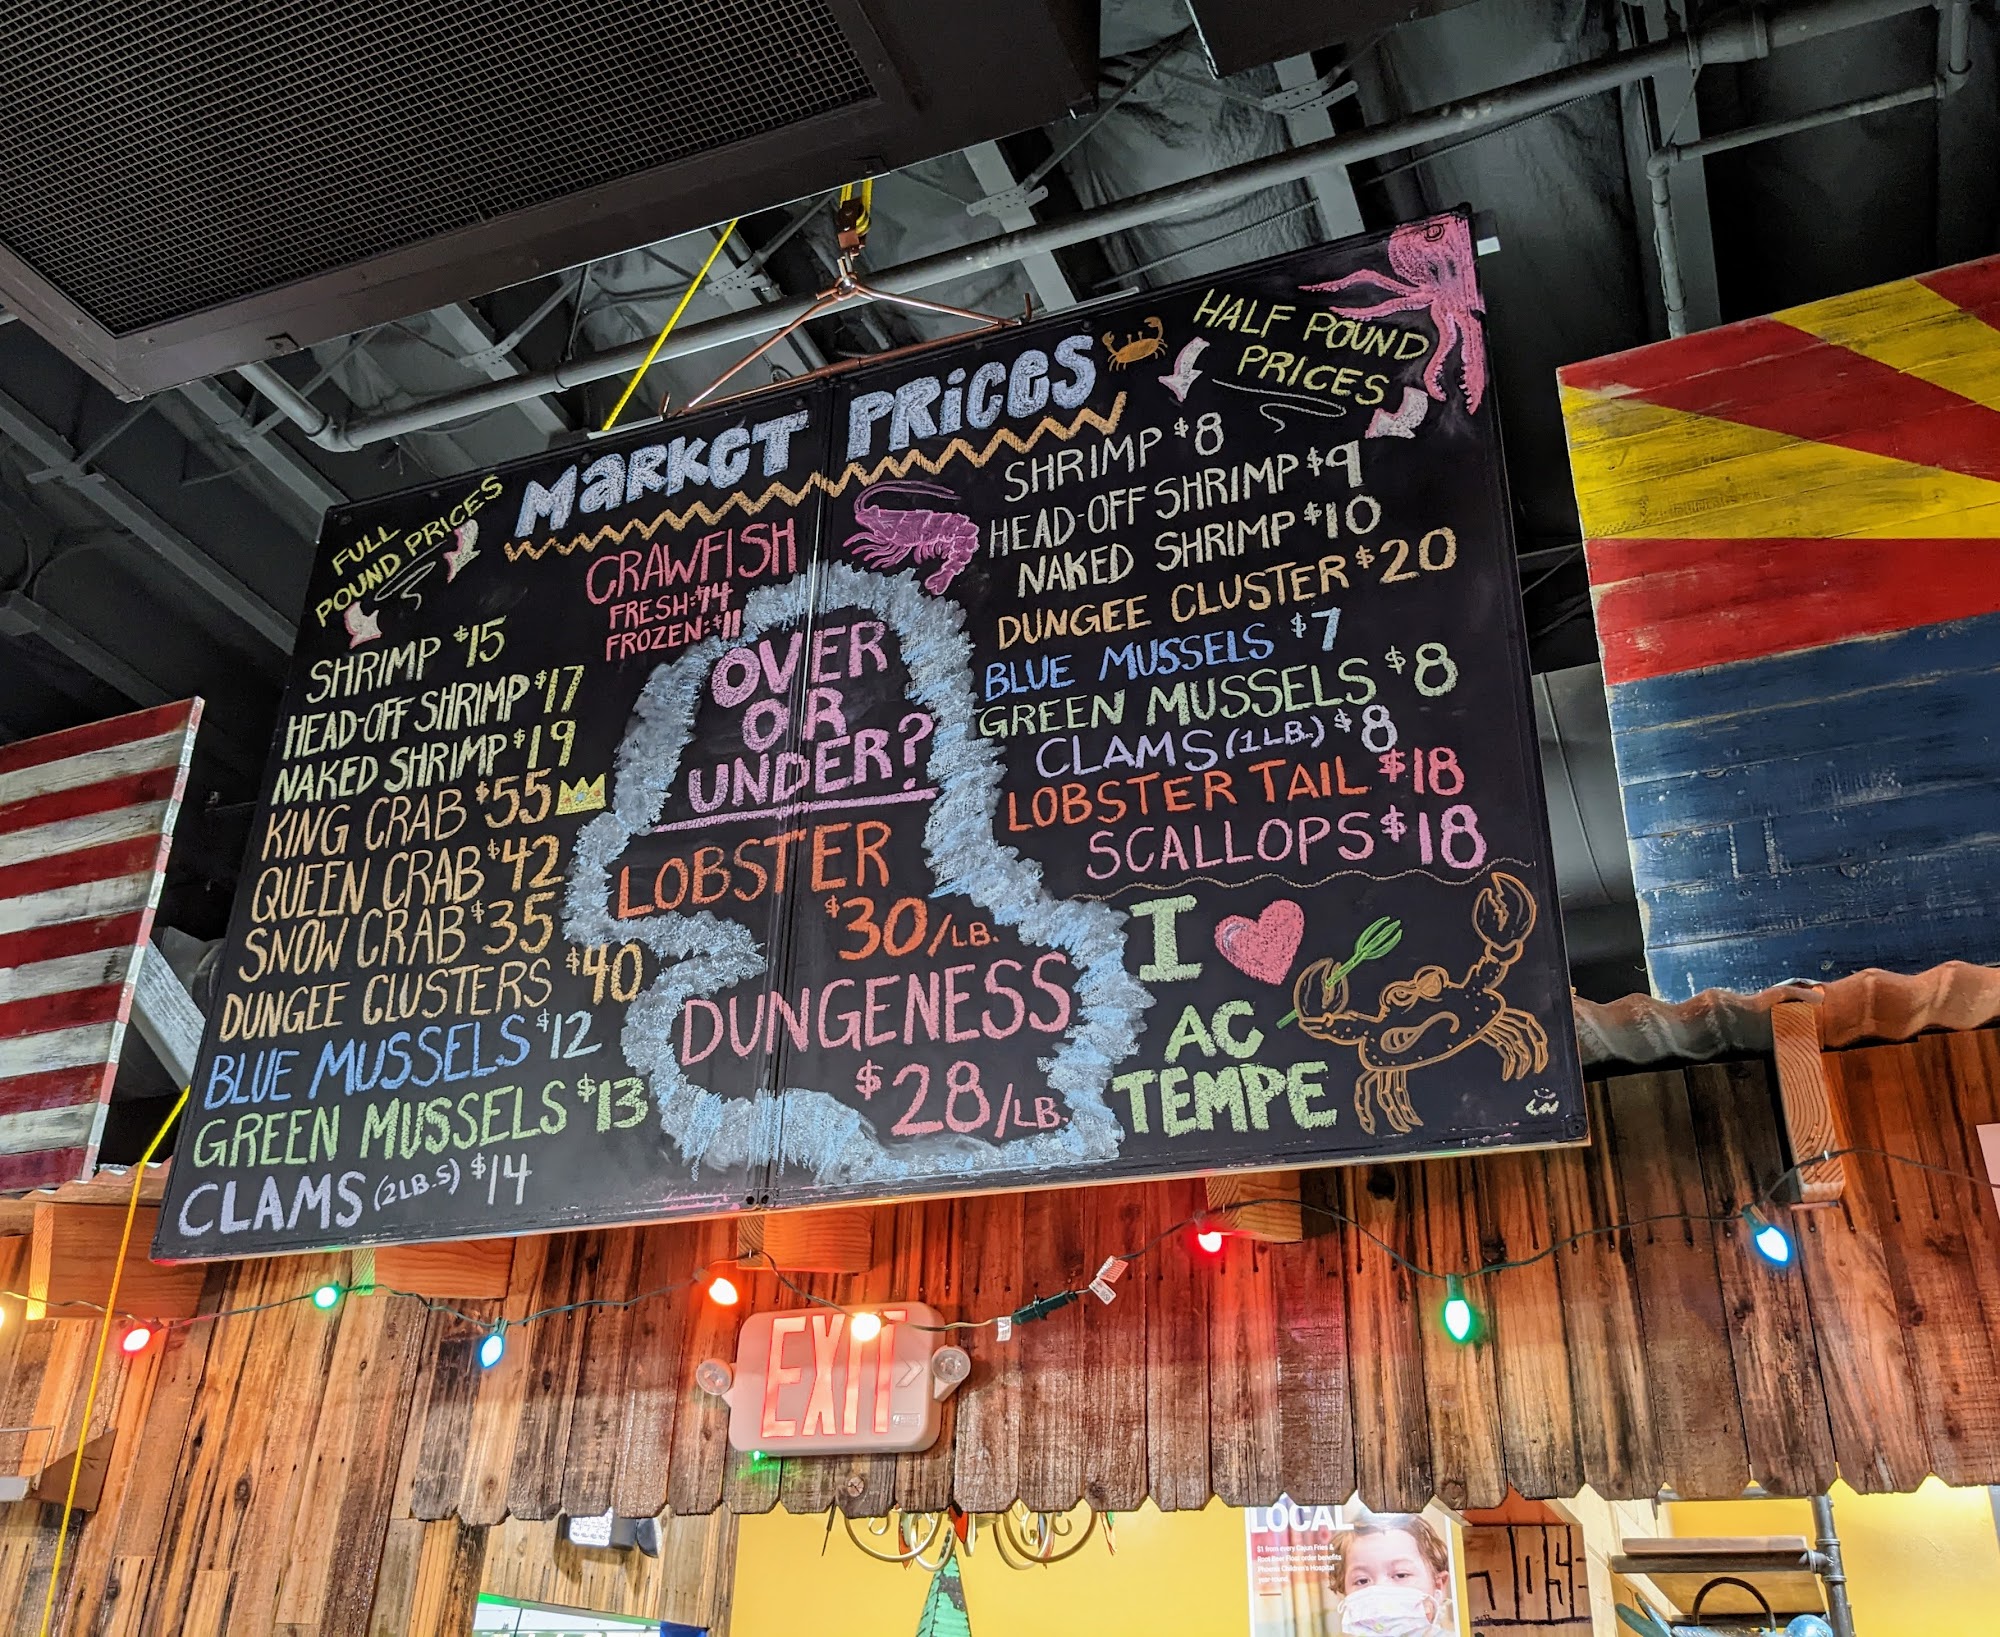 MARKET PRICES
FULL
POUND PRICES
SHRIMP $15
HEAD-OFF SHRIMP $17
NAKED SHRIMP $19
KING CRAB $55
QUEEN CRAB $42
SNOW CRAB $35
DUNGEE CLUSTERS $40
BLUE MUSSELS $12
GREEN MUSSELS $13
CLAMS (2LB.S) $14
CRAWFISH
FRESH: $14
FROZEN: $11
OVER
OR
UNDER?
LOBSTER
$30/LB.
DUNGENESS
$28/LB.
HALF POUND
PRICES
SHRIMP $8
HEAD-OFF SHRIMP $9
NAKED SHRIMP $10
DUNGEE CLUSTER $20
BLUE MUSSELS $7
GREEN MUSSELS $8
CLAMS (1LB.) $8
LOBSTER TAIL $18
SCALLOPS $18
I
AC
TEMPE
EXIT
LOCAL
$1 from every Cajun Fries &
Root Beer Float order benefits
Phoenix Children's Hospital